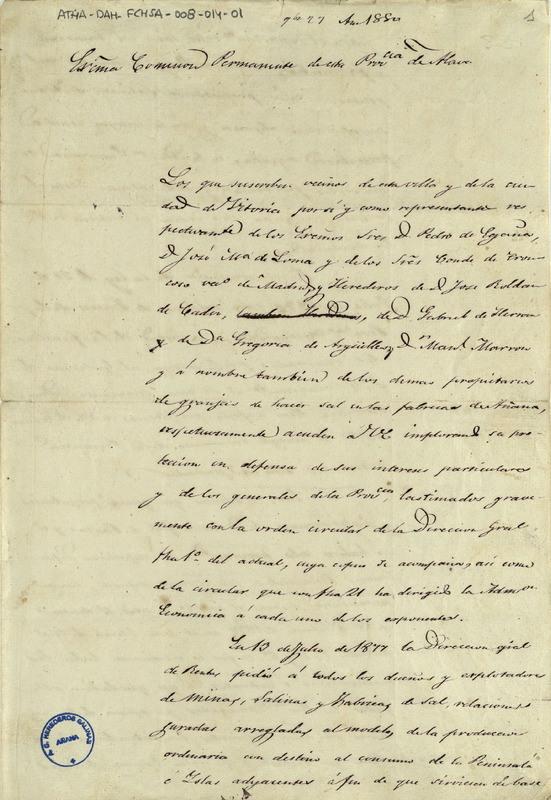 ATHA-DAH-FCHSA-008-014-01
1
Excma Comision Permanente de esta Provcia de Alava
Los que suscriben vecinos de esta villa y de la ciu-
dad de Vitoria por sí y como representantes res-
pectivamte de los Exemos Sres D. Pedro de Egaña,
D. José Ma de Loma y de los Sres Conde de Tron-
coso veco de Madrid, y Herederos de D. José Roldan
de Cadiz, de D. Gabriel de Herran
y de Da Gregoria de Argüelles, D. Manl Marron
y á nombre tambien de los demas propietarios
de granjas de hacer sal en las fabricas de Añana,
respetuosamente acuden a VE implorando su pro-
teccion en defensa de sus intereses particulares
y de los generales de la Provcia, lastimados grave-
mente con la orden circular de la Direccion Gral
fha 1o del actual, cuya copia se acompaña, asi como
de la circular que con fha 21 ha dirigido la Admon
Económica á cada uno de los exponentes.
En 13 de Julio de 1877 la Direccion gral
de Rentas pidió á todos los dueños y explotadores
de Minas, Salinas y Fabricas de sal, relaciones
juradas arregladas al modelo, de la produccion
ordinaria con destino al consumo de la Peninsula
é Islas adyacentes á fin de que sirviesen de base
P. G. HEREDEROS SALINAS
AÑANA